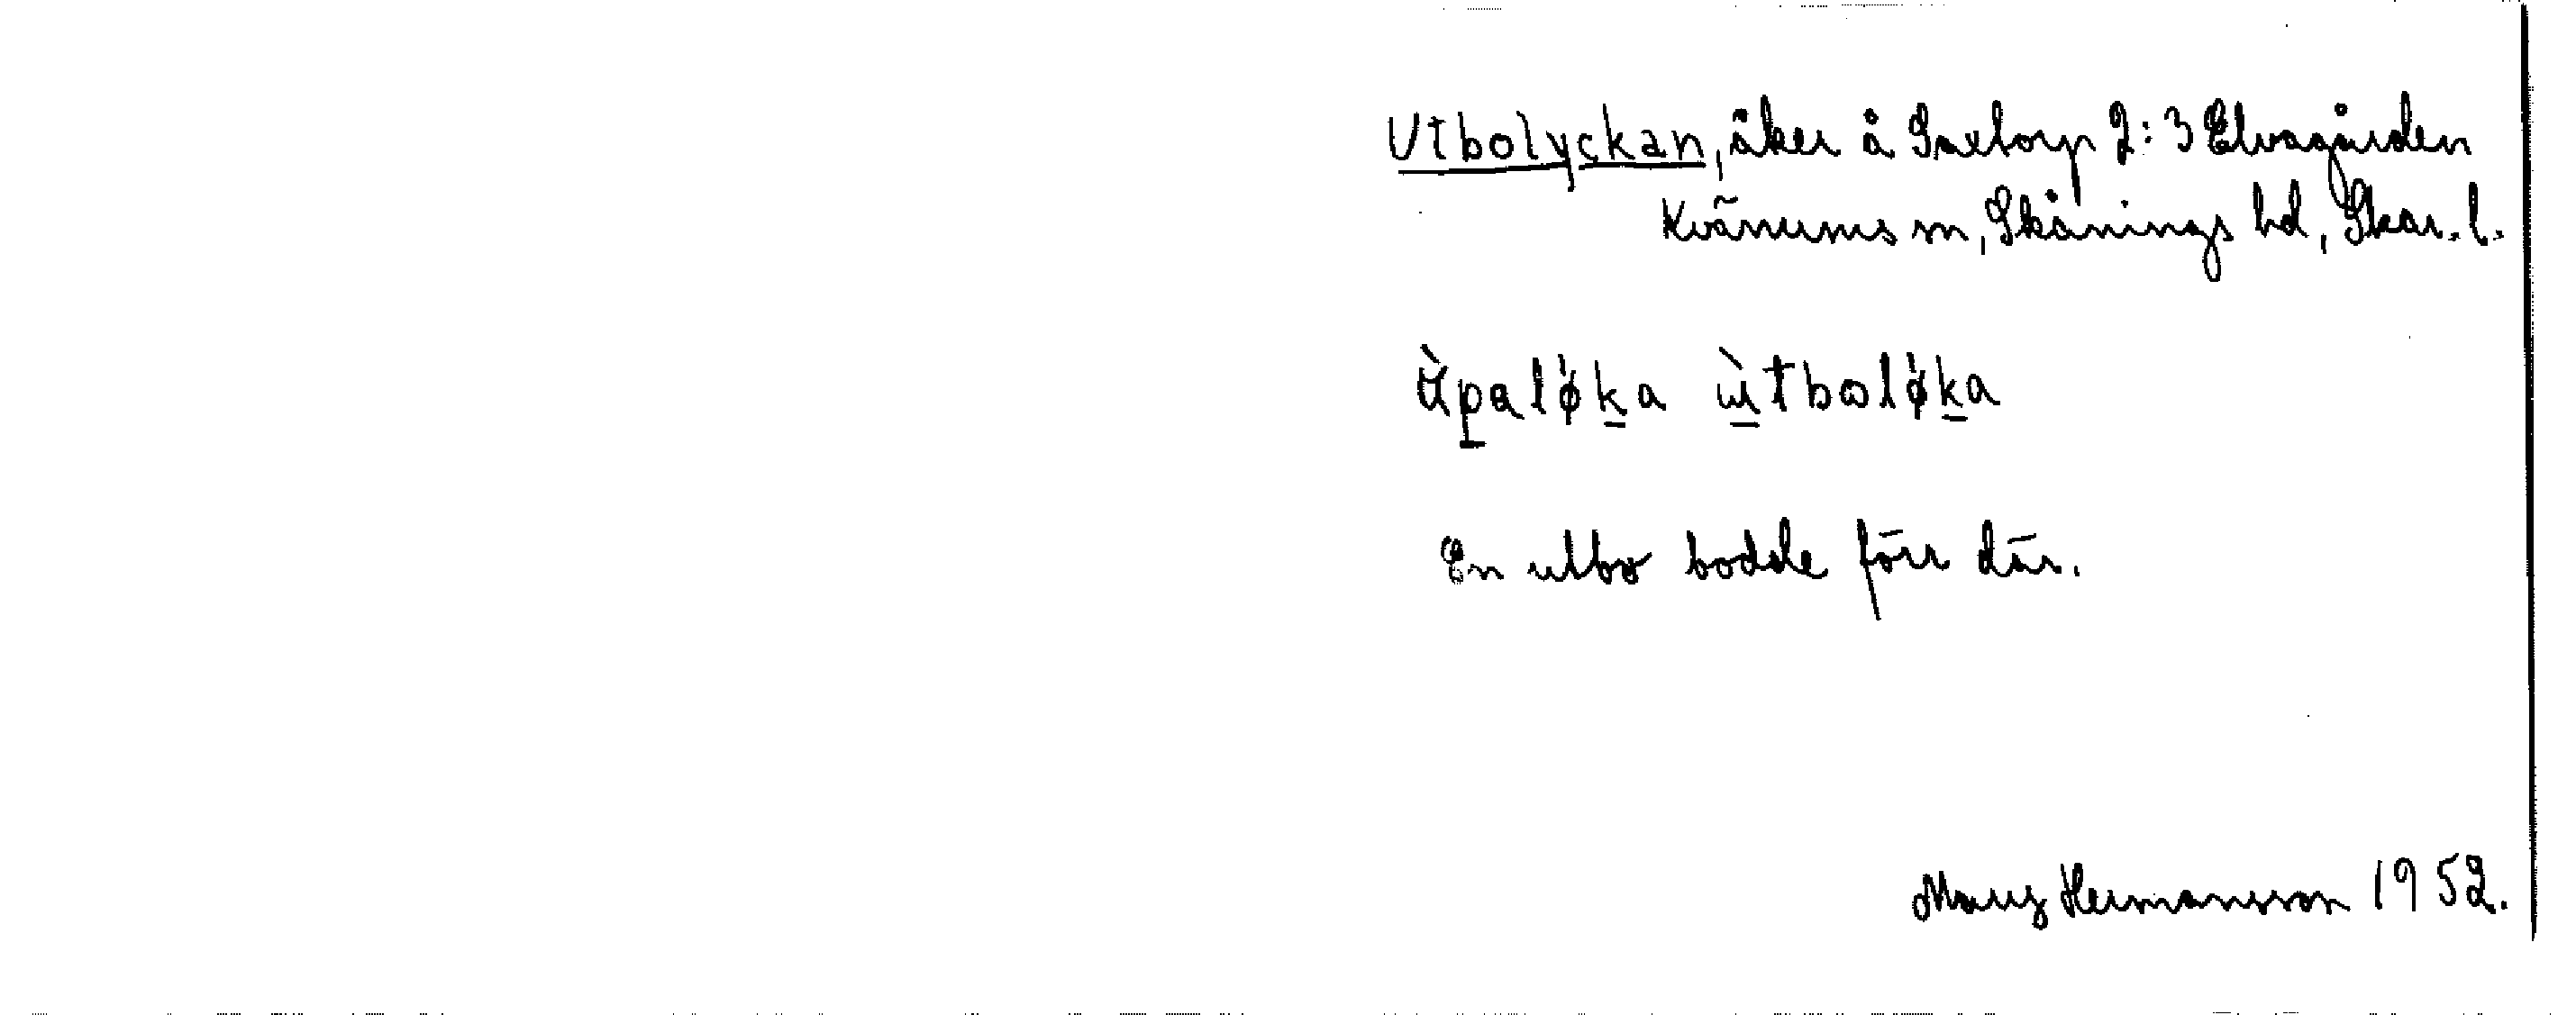 Utbolyckan, åker å Saxtorp 2:3 Elvagården
Kvänums sn, Skånings hd, Skar. l.
ùtboløka
En utbo bodde förr där.
Mary Hermansson 1952.